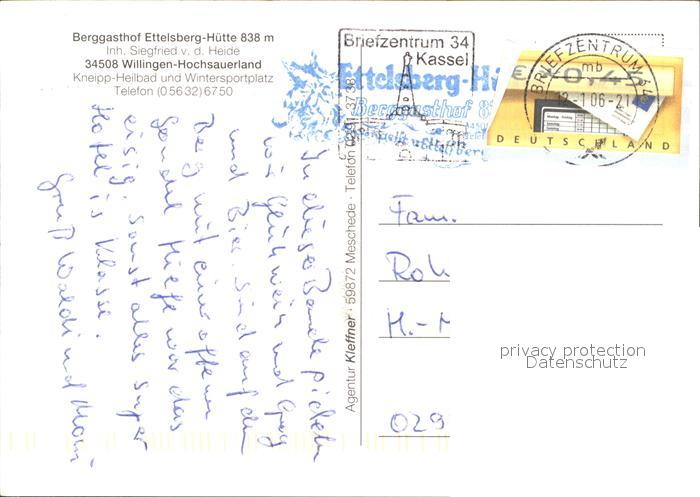 Berggasthof Ettelsberg-Hütte 838 m
Inh. Siegfried v. d. Heide
34508 Willingen-Hochsauerland
Kneipp-Heilbad und Wintersportplatz
Telefon (05632) 6750
Briefzentrum 34
Kassel
Ettelsberg-Hü
Berggasthof 8
BRIEFZENTRUM 34
mb
-1.06-21
€ 0,45
DEUTSCHLAND
In dieser Baude picheln
wir Glühwein und Grog
und Bier. Sind auf den
Berg mit einer offenen
Gondel
eisig, sonst alles super
Hotel is Klasse.
Gruß Waldi und
Agentur Kleffner · 59872 Meschede · Telefon
Fam.
Roh
H.-M
029
privacy protection
Datenschutz